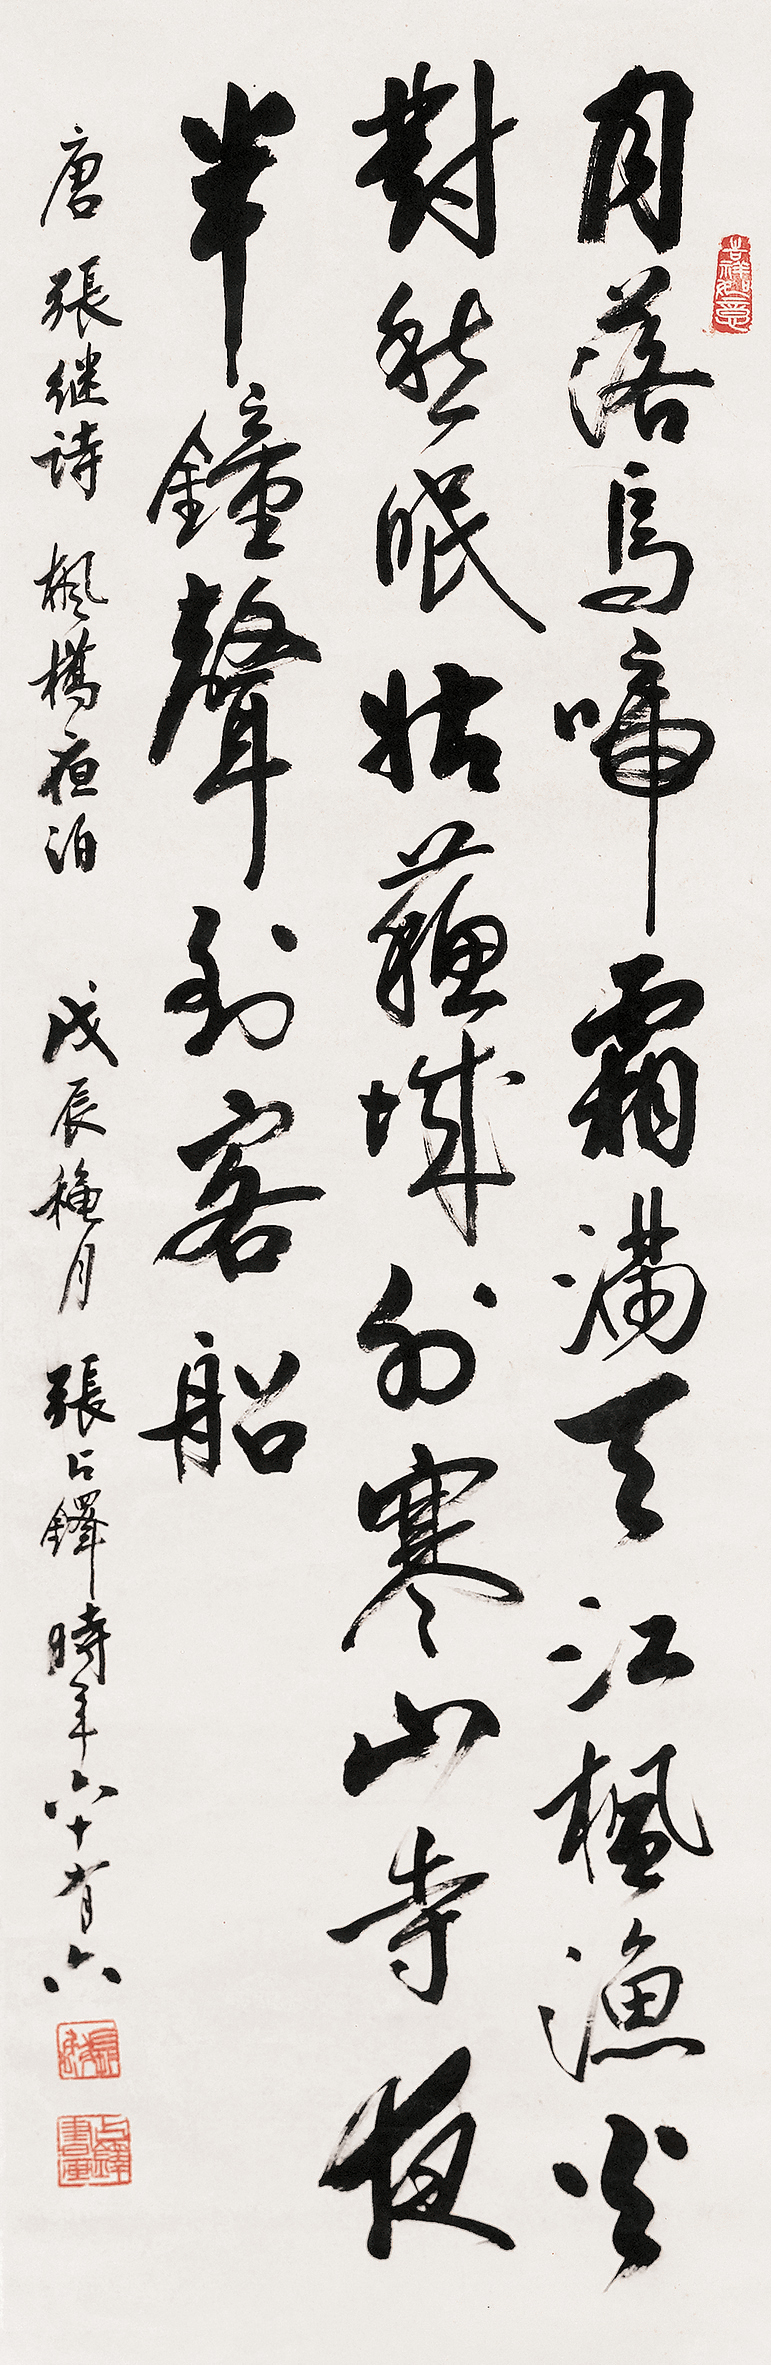 月落烏啼霜滿天江楓漁火
對愁眠姑蘇城外寒山寺夜
半鐘聲到客船
唐張继诗楓橋夜泊戊辰穐月張占鐸時年六十有六
吉祥如意